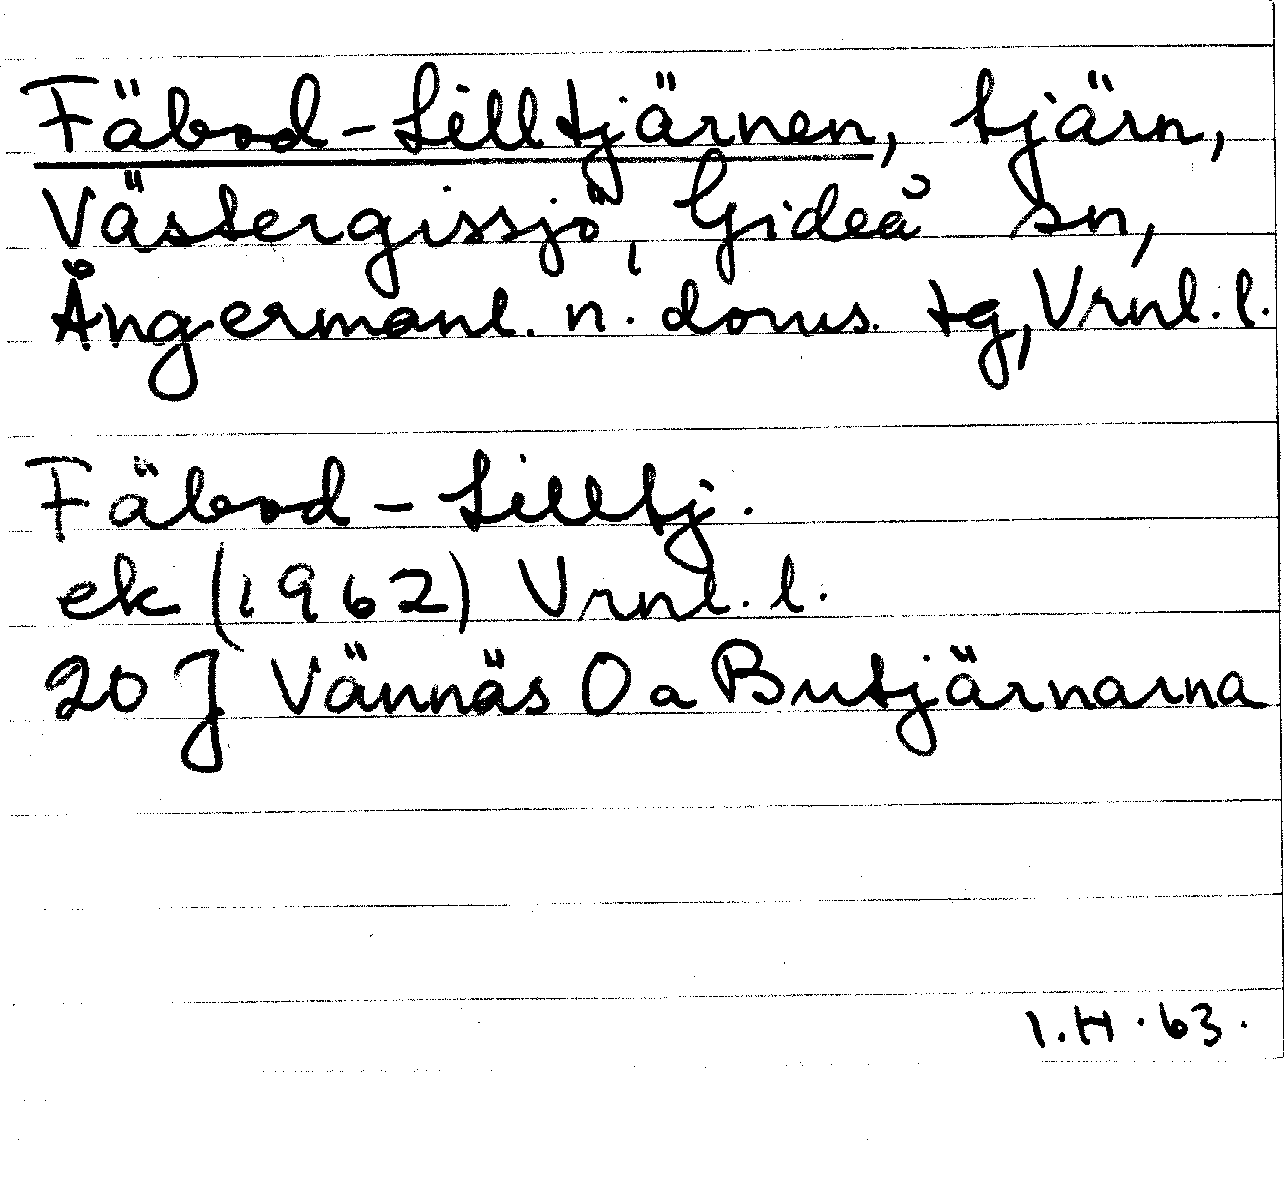 Fäbod-Lilltjärnen, tjärn,
Västergissjö, Gideå sn,
Ångermanl. n. doms. tg, Vrnl. l.
Fäbod-Lilltj.
ek (1962) Vrnl. l.
20 J Vännäs O a Butjärnarna
I.H. 63.